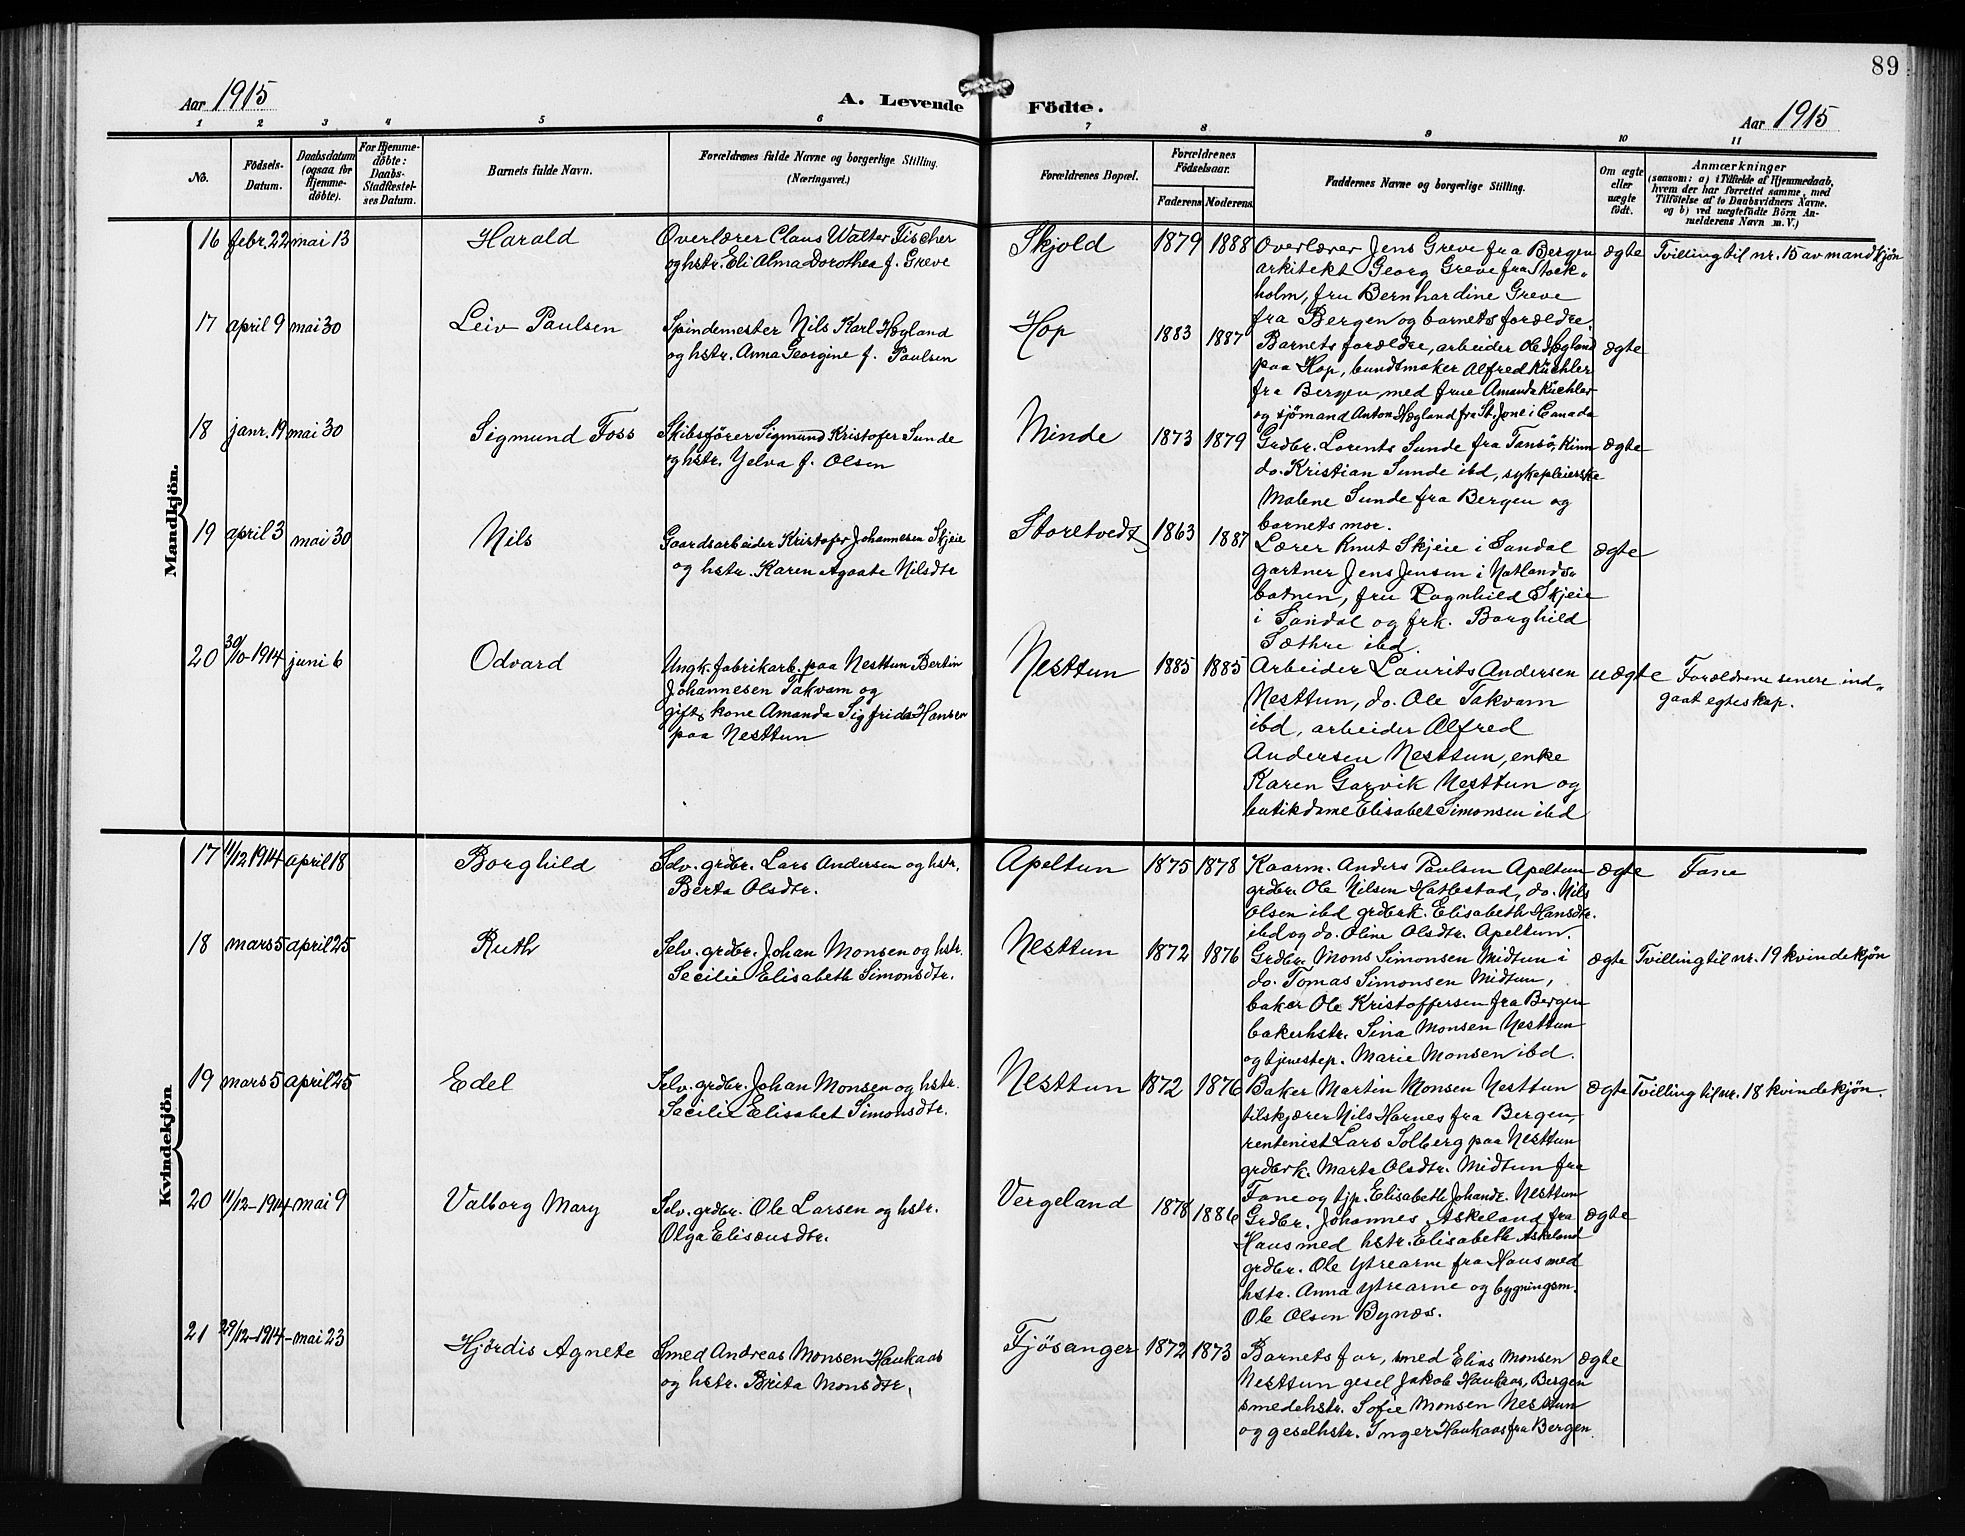 89
Aar 1915
A. Levende Födte.
Aar 1915
1 2 3 4 5 6 7 8 9 10 11
No.
Födsels-
Datum.
Daabsdatum
(ogsaa for
Hjemme-
døbte).
For Hjemme-
døbte:
Daabs-
Stadfæstel-
ses Datum.
Barnets fulde Navn.
Forældrenes fulde Navne og borgerlige Stilling.
(Næringsvei.)
Forældrenes Bopæl.
Forældrenes
Födselsaar.
Faderens Moderens
Faddernes Navne og borgerlige Stilling.
Om ægte
eller
uægte
født.
Anmærkninger
(saasom: a) i Tilfælde af Hjemmedaab,
hvem der har forrettet samme, med
Tilføtelse af to Daabsvidners Navne.
og b) ved uægtefødte Børn An-
melderens Navn m. V.)
Mandkjön.
16 febr. 22 mai 13
Harald
Overlærer Claus Walter Fischer
og hstr. Eli Alma Dorothea f. Greve
Skjold
1879 1888
Overlærer Jens Greve fra Bergen
arkitekt Georg Greve fra Stock-
holm, fru Bernhardine Greve
fra Bergen og barnets forældre.
ægte
Tvilling til nr. 15 av mandkjøn
17 april 9 mai 30
Leiv Paulsen
Spindemester Nils Karl Høgland
og hstr. Anna Georgine f. Paulsen
Hop
1883 1887
Barnets forældre, arbeider Ole Høgland
paa Hop, bundtmaker Alfred Küchler
fra Bergen med frue Amanda Küchler
og sjömand Anton Høgland fra St. Jone i Canada
ægte
18 janr. 19 mai 30
Sigmund Foss
Skibsfører Sigmund Kristofer Sunde
og hstr. Yelva f. Olsen
Minde
1873 1879
Grdbr. Lorents Sunde fra Tansö, Kinn
do. Kristian Sunde ibd, sykepleierske
Malene Sunde fra Bergen og
barnets mor.
ægte
19 april 3 mai 30
Nils
Gaardsarbeider Kristofer Johannesen Skjeie
og hstr. Karen Agaate Nilsdtr
Storetvedt
1863 1887
Lærer Knut Skjeie i Sandal
gartner Jens Jensen i Natlands-
batnen, fru Ragnhild Skjeie
i Sandal og frk. Borghild
Sæthre ibd.
ægte
20 30/10-1914 juni 6
Odvard
Ungk. fabrikarb. paa Nesttun Bertin
Johannesen Takvam og
gift kone Amanda Sigfrida Hansen
paa Nesttun
Nesttun
1885 1885
Arbeider Laurits Andersen
Nesttun, do. Ole Takvam
ibd, arbeider Alfred
Andersen Nesttun, enke
Karen Garvik Nesttun og
butikdame Elisabet Simonsen ibd
uægte
Forældrene senere ind-
gaat egteskap.
Kvindekjön
17 11/12 1914 april 18
Borghild
Selv. grdbr. Lars Andersen og hstr.
Berta Olsdtr.
Apeltun
1875 1878
Kaarm. Anders Paulsen Apeltun
grdbr. Ole Nilsen Hatlestad, do. Nils
Olsen ibd grdbrk. Elisabeth Hansdtr.
ibd og do. Oline Olsdtr. Apeltun
ægte
Fane
18 mars 5 april 25
Ruth
Selv. grdbr. Johan Monsen og hstr.
Secilie Elisabeth Simonsdtr.
Nesttun
1872 1876
Grdbr. Mons Simonsen Midtun i
do. Tomas Simonsen Midtun,
baker Ole Kristoffersen fra Bergen
bakerhstr. Sina Monsen Nesttun
og tjenestep. Marie Monsen ibd.
ægte
Tvilling til nr. 19 kvindekjøn
19 mars 5 april 25
Edel
Selv. grdbr. Johan Monsen og hstr.
Secilie Elisabet Simonsdtr.
Nesttun
1872 1876
Baker Martin Monsen Nesttun
tilskjærer Nils Harnes fra Bergen,
rentenist Lars Solberg paa Nesttun
grdbrk. Marta Olsdtr. Midtun fra
Fane og tjp. Elisabeth Johandr. Nesttun
ægte
Tvilling til nr. 18 kvindekjøn.
20 11/12-1914 mai 9
Valborg Mary
Selv. grdbr. Ole Larsen og hstr.
Olga Eliseusdtr.
Vergeland
1878 1886
Grdbr. Johannes Askeland fra
Haus med hstr. Elisabeth Askeland
grdbr. Ole Ytrearne fra Haus med
hstr. Anna Ytrearne og bygningsm.
Ole Olsen Bynæs.
ægte
21 29/12-1914 mai 23
Hjördis Agnete
Smed Andreas Monsen Haukaas
og hstr. Brita Monsdtr.
Fjösanger
1872 1873
Barnets far, smed Elias Monsen
Nesttun gesel Jakob Haukaas, Bergen
smedehstr. Sofie Monsen Nesttun
og geselhstr. Inger Haukaas fra Bergen.
ægte